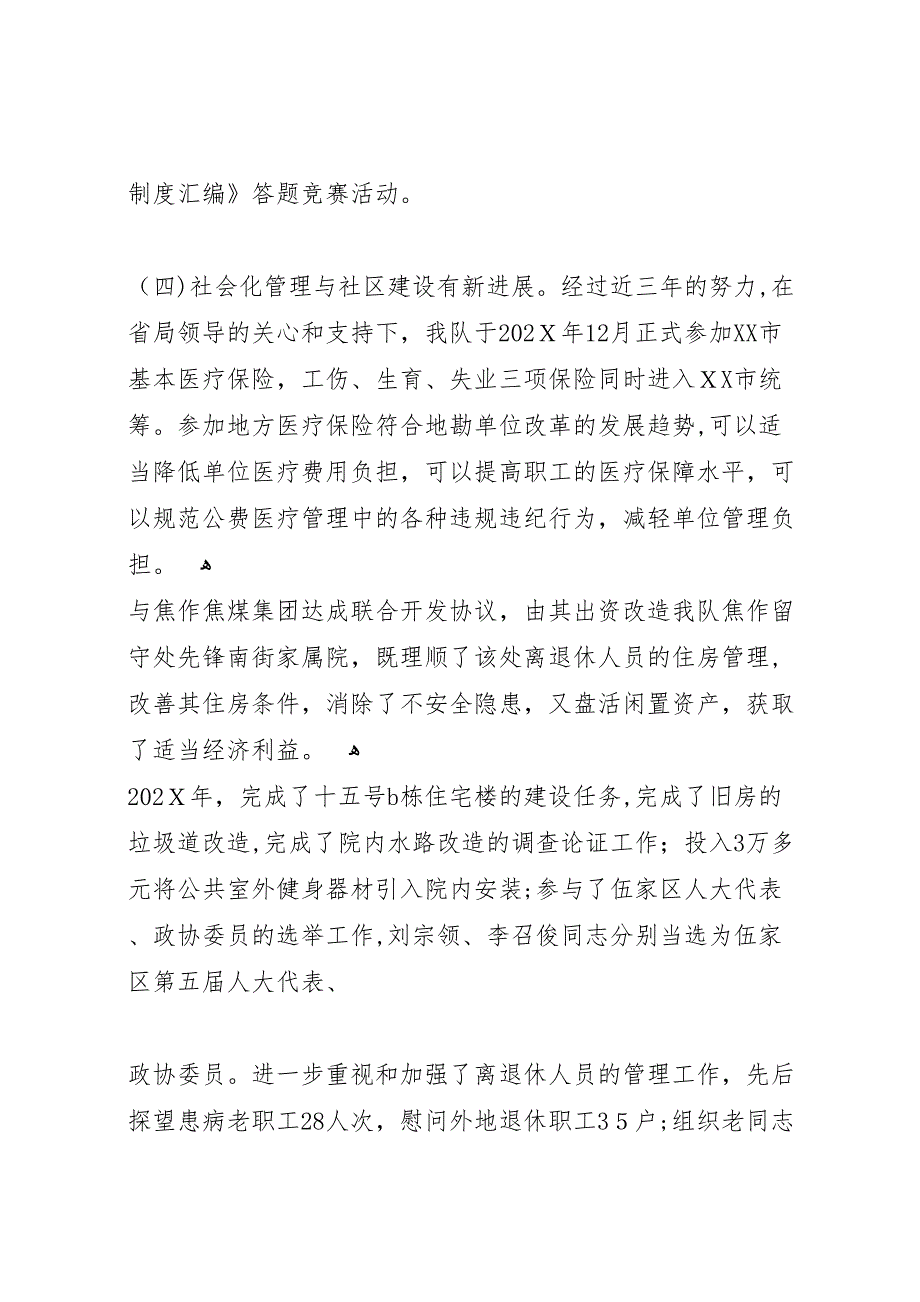 制度汇编》答题竞赛活动。
（四)社会化管理与社区建设有新进展。经过近三年的努力,在
省局领导的关心和支持下，我队于202Ｘ年12月正式参加XX市
基本医疗保险，工伤、生育、失业三项保险同时进入ＸX市统
筹。参加地方医疗保险符合地勘单位改革的发展趋势,可以适
当降低单位医疗费用负担，可以提高职工的医疗保障水平，可
以规范公费医疗管理中的各种违规违纪行为，减轻单位管理负
担。 ﻫ
与焦作焦煤集团达成联合开发协议，由其出资改造我队焦作留
守处先锋南街家属院，既理顺了该处离退休人员的住房管理,
改善其住房条件，消除了不安全隐患，又盘活闲置资产，获取
了适当经济利益。 ﻫ
202Ｘ年，完成了十五号b栋住宅楼的建设任务,完成了旧房的
垃圾道改造,完成了院内水路改造的调查论证工作；投入3万多
元将公共室外健身器材引入院内安装;参与了伍家区人大代表
、政协委员的选举工作,刘宗领、李召俊同志分别当选为伍家
区第五届人大代表、
政协委员。进一步重视和加强了离退休人员的管理工作，先后
探望患病老职工28人次，慰问外地退休职工3５户;组织老同志